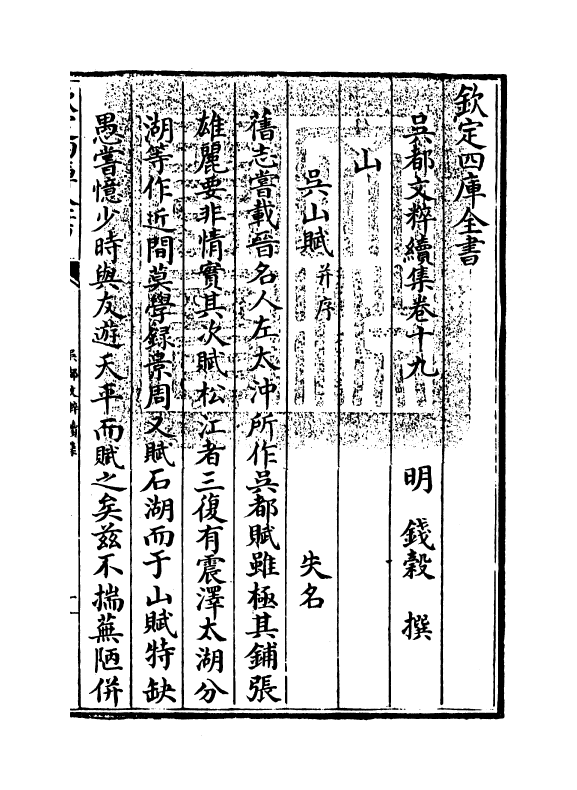 欽定四庫全書
吳都文粹續集卷十九　　明　錢穀　撰
山
吳山賦并序　　失名
舊志嘗載晉名人左太沖所作吳都賦雖極其鋪張
雄麗要非情實其次賦松江者三復有震澤太湖分
湖等作近間莫學録景周又賦石湖而于山賦特缺
愚嘗憶少時與友遊天平而賦之矣兹不揣蕪陋併